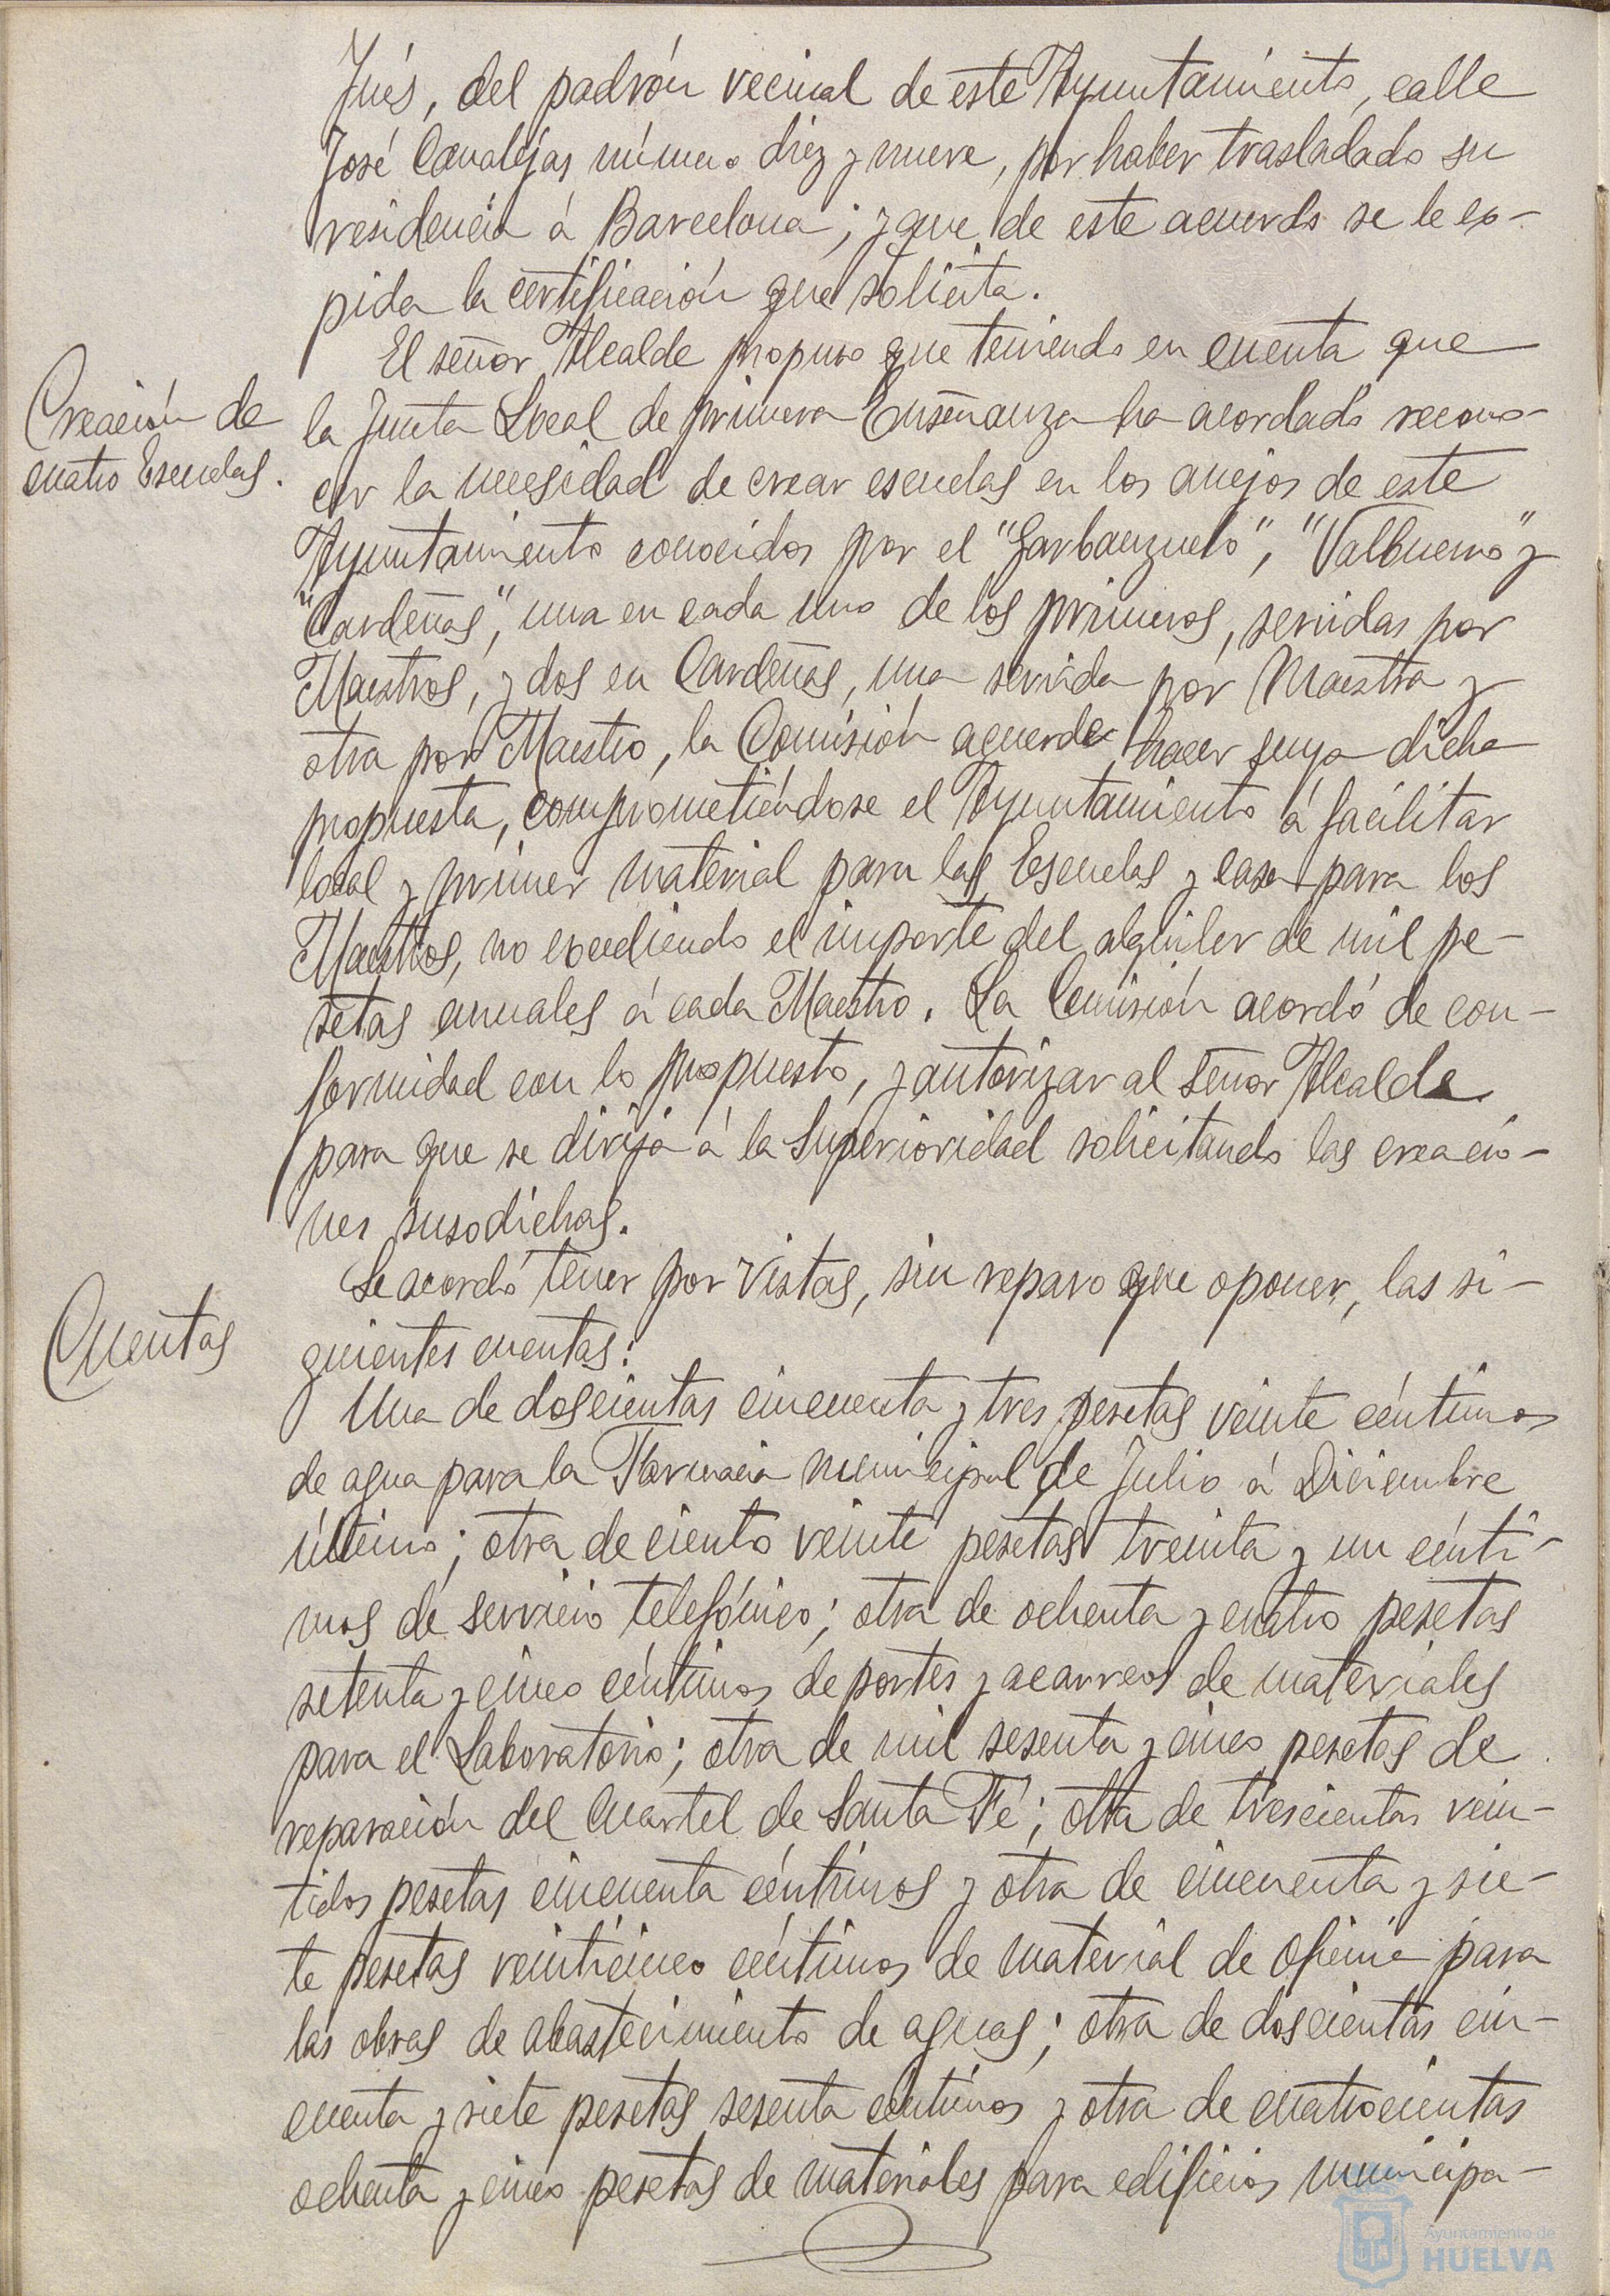 Jués, del padrón vecinal de este Ayuntamiento, calle
José Canalejas número diez y nueve, por haber trasladado su
residencia á Barcelona; y que de este acuerdo se le ex-
pida la certificación que solicita.
El señor Alcalde propuso que teniendo en cuenta que
Creación de
cuatro Escuelas.
la Junta Local de primera Enseñanza ha acordado recono-
cer la necesidad de crear escuelas en los anejos de este
Ayuntamiento conocidos por el "Garbanzuelo", "Valbueno" y
"Cardeñas", una en cada uno de los primeros, servidas por
Maestros, y dos en Cardeñas, una servida por Maestra y
otra por Maestro, la Comisión acuerda hacer suya dicha
propuesta, comprometiéndose el Ayuntamiento á facilitar
local y primer material para las Escuelas y casa para los
Maestros, no excediendo el importe del alquiler de mil pe-
setas anuales á cada Maestro. La Comisión acordó de con-
formidad con lo propuesto, y autorizar al señor Alcalde
para que se dirija á la Superioridad solicitando las creacio-
nes susodichas.
Cuentas
Se acordó tener por vistas, sin reparo que oponer, las si-
guientes cuentas:
Una de doscientas cincuenta y tres pesetas veinte céntimos
de agua para la Farmacia municipal de Julio á Diciembre
último; otra de ciento veinte pesetas treinta y un cénti-
mos de servicio telefónico; otra de ochenta y cuatro pesetas
setenta y cinco céntimos de portes y acarreos de materiales
para el Laboratorio; otra de mil sesenta y cinco pesetas de
reparación del Cuartel de Santa Fé; otra de trescientas vein-
tidos pesetas cincuenta céntimos y otra de cincuenta y sie-
te pesetas veinticinco céntimos de material de oficina para
las obras de abastecimiento de aguas; otra de doscientas cin-
cuenta y siete pesetas sesenta céntimos y otra de cuatrocientas
ochenta y cinco pesetas de materiales para edificios municipa-
Ayuntamiento de
HUELVA